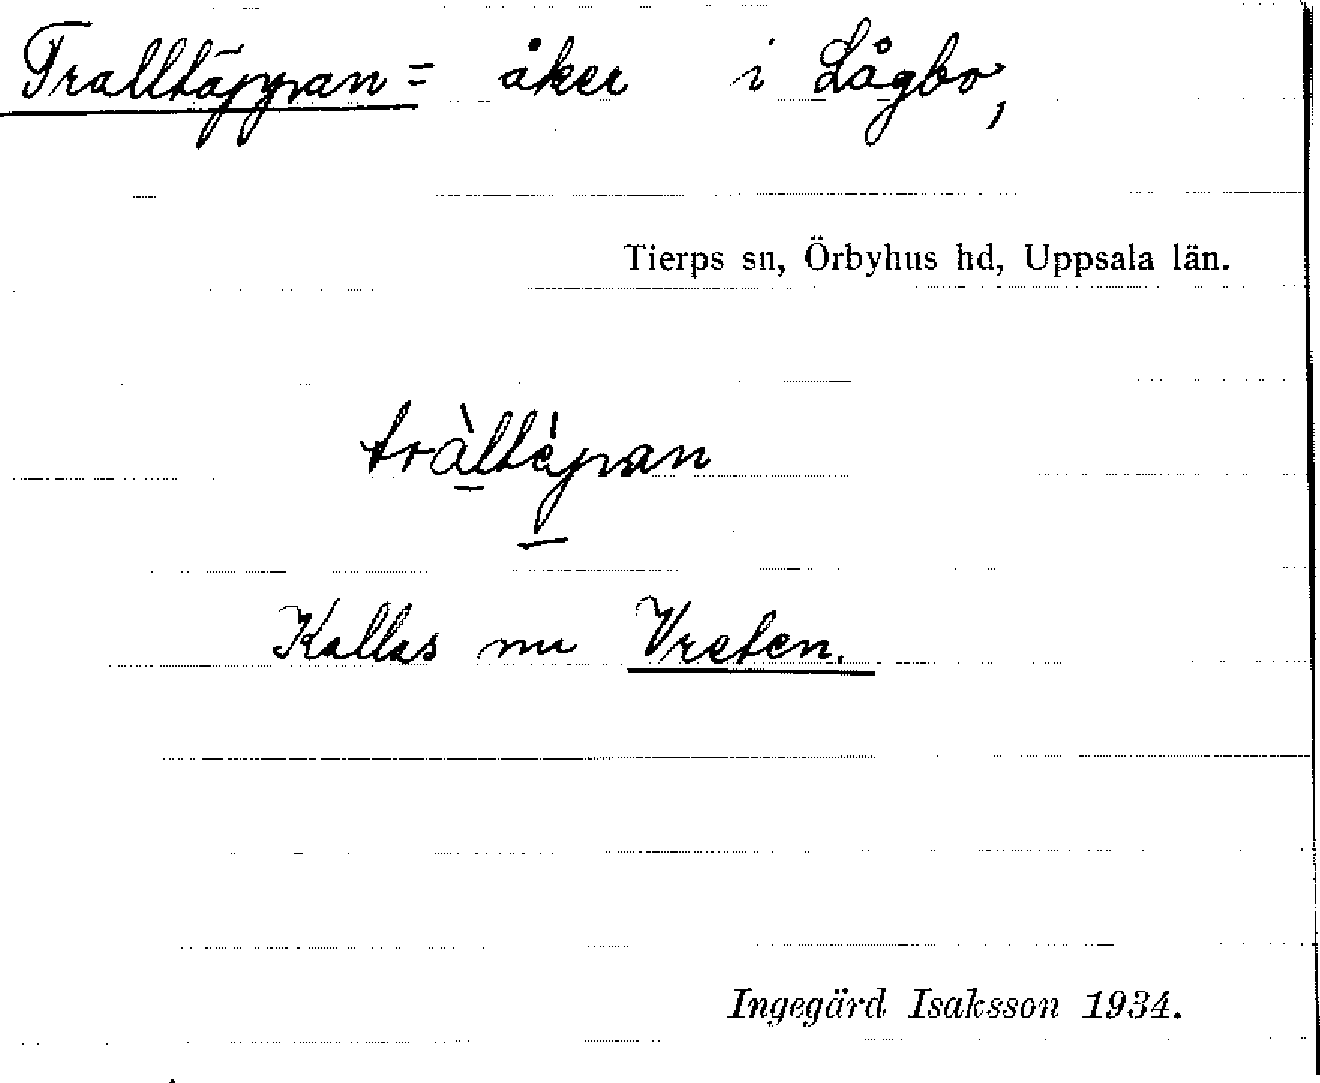 Tralltäppan = åker i Lågbo,
Tierps sn, Örbyhus hd, Uppsala län.
tràltèpan
Kallas nu Vreten.
Ingegärd Isaksson 1934.